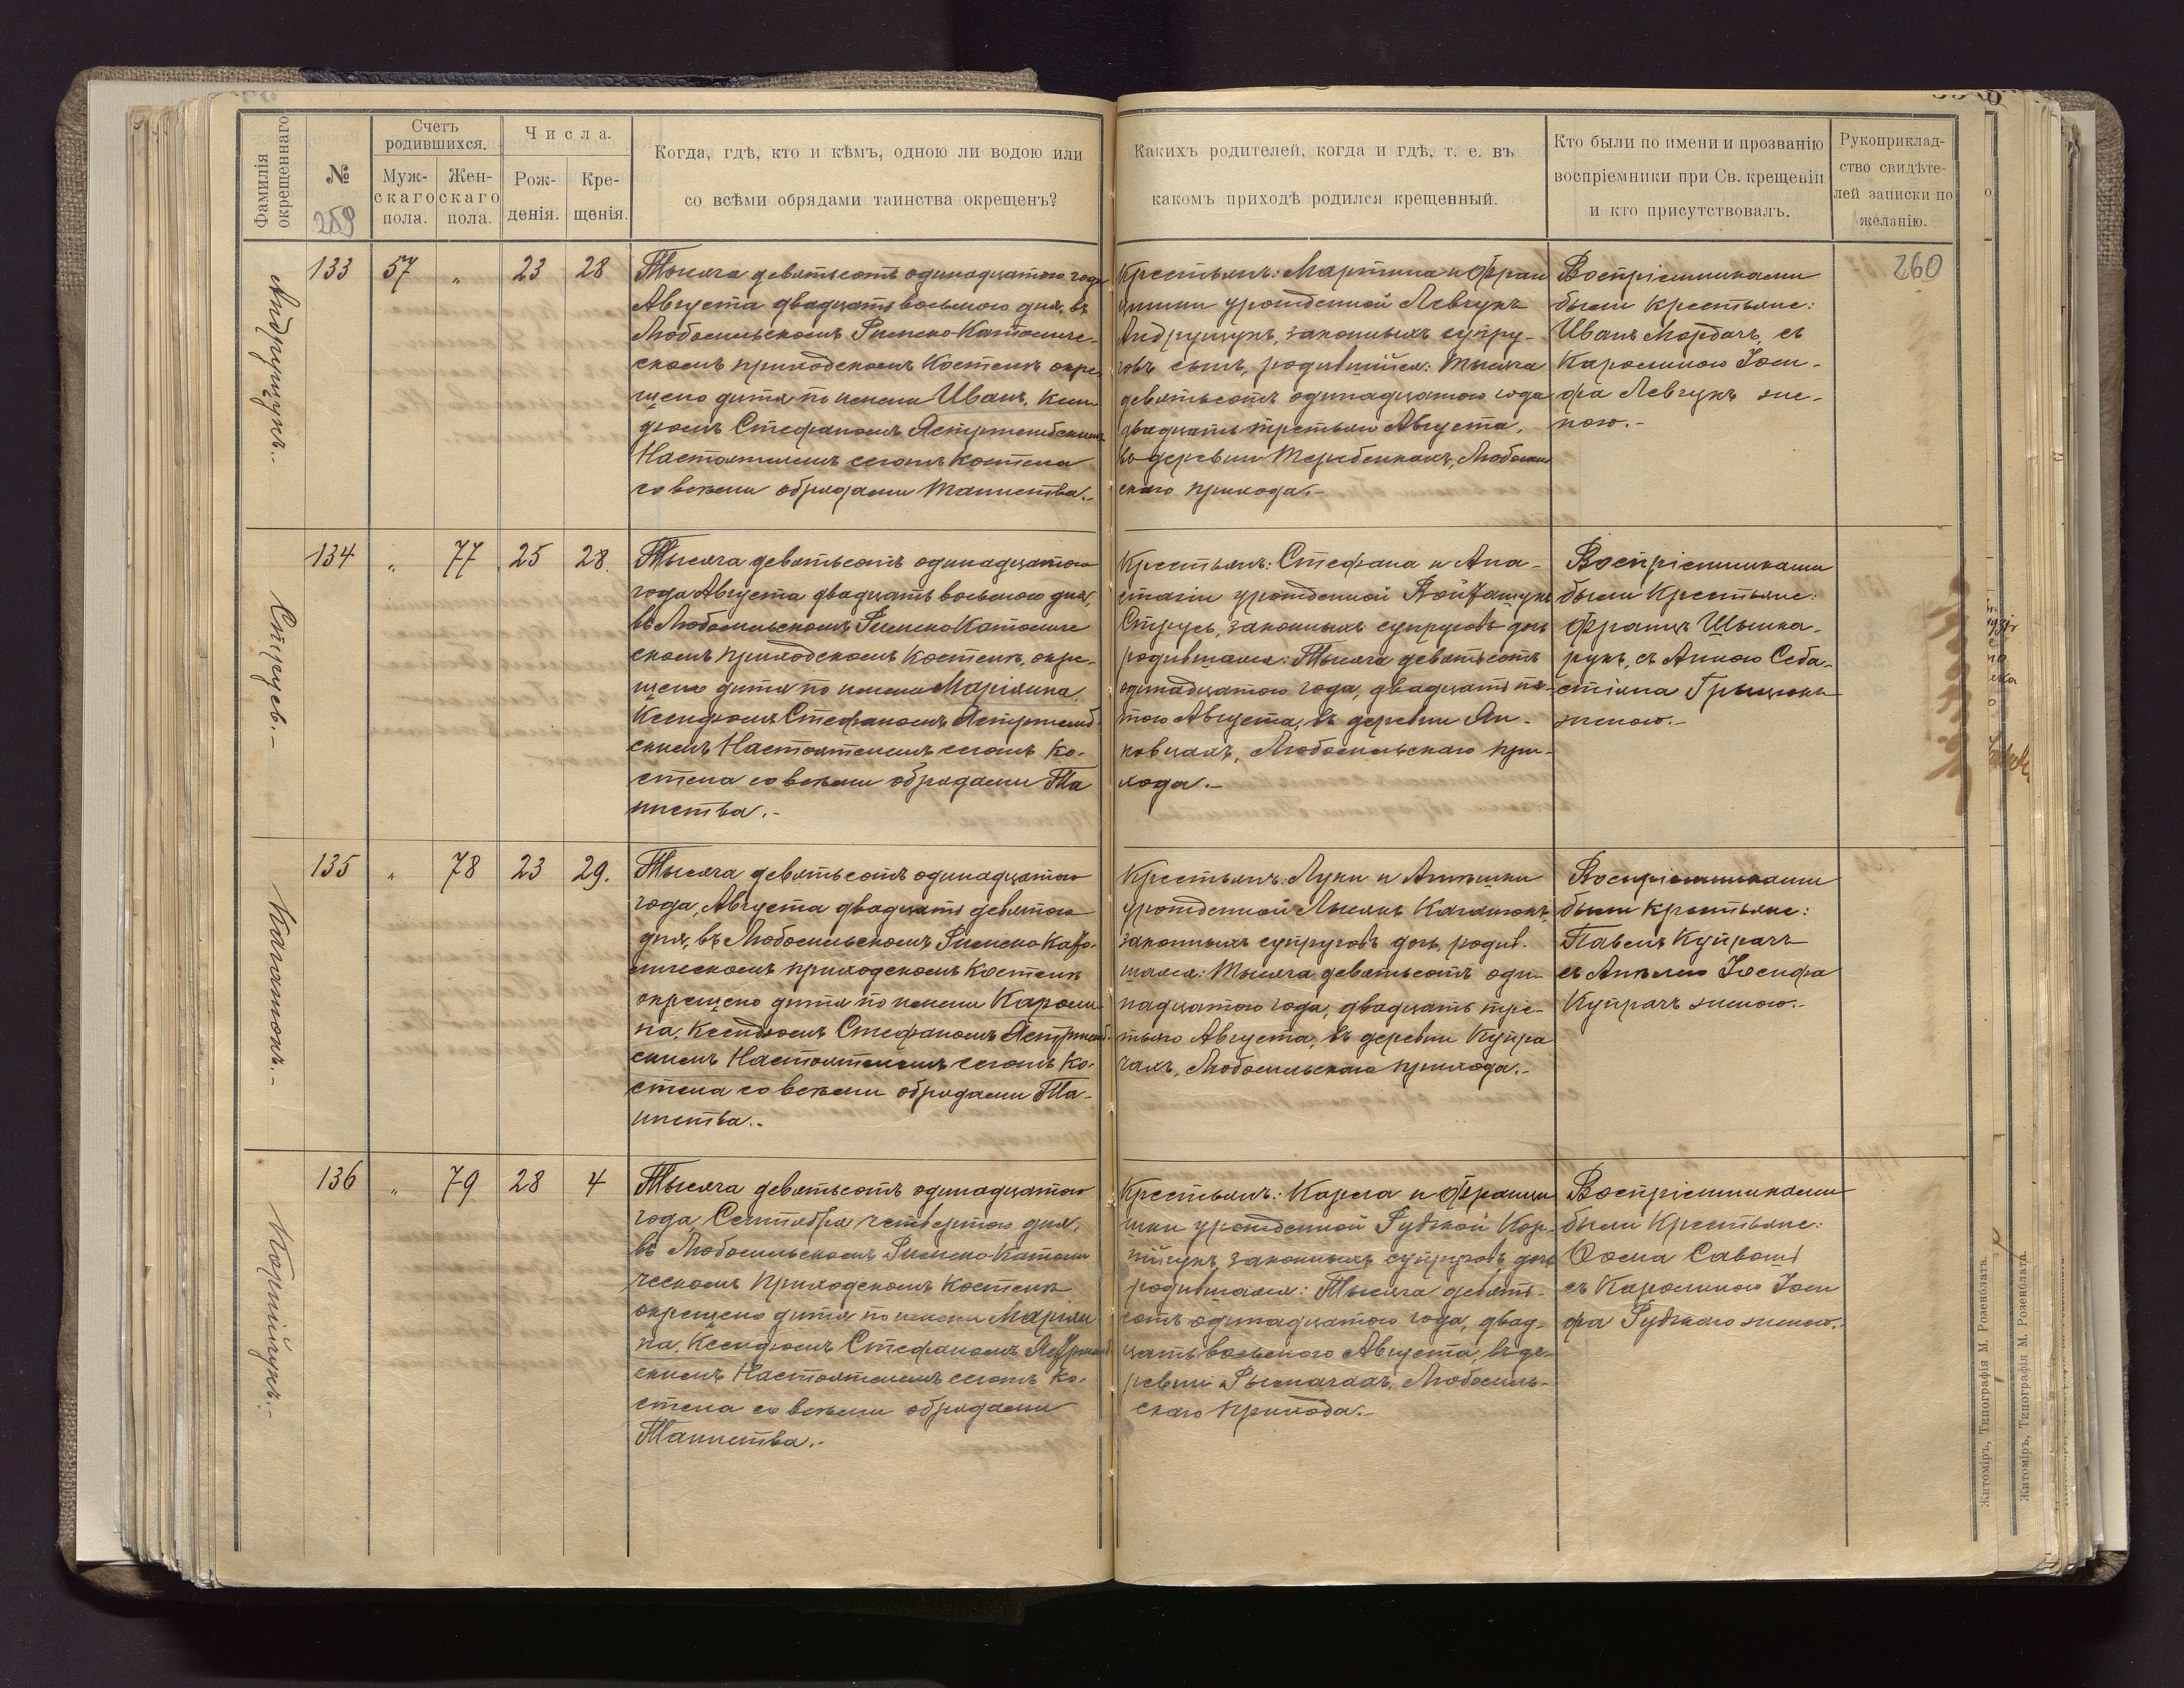 Фамилія окрещеннаго
№
259
Счетъ родившихся.
Мужскаго пола.
Женскаго пола.
Числа.
Рожденія.
Крещенія.
Когда, гдѣ, кто и кѣмъ, одною ли водою или
со всѣми обрядами таинства окрещенъ?
Какихъ родителей, когда и гдѣ, т. е. въ
какомъ приходѣ родился крещенный.
Кто были по имени и прозванію
воспріемники при Св. крещеніи
и кто присутствовалъ.
Рукоприклад-
ство свидѣте-
лей записки по
желанію.
260
Андрущукъ.-
133 57 „ 23 28
Тысяча девятьсотъ одинадцатого года
Августа двадцать восьмого дня, въ
Любомльскомъ Римско-Католиче-
скомъ приходскомъ Костелѣ окре-
щено дитя по имени Иванъ, Ксен-
дзомъ Стефаномъ Ястржембскимъ
Настоятелемъ сегожъ костела
со всѣми обрядами Таинства.-
Крестьянъ: Мартина и Фран
цишки урожденной Левчукъ
Андрущукъ, законныхъ супру-
говъ сынъ, родившійся: тысяча
девятьсотъ одинадцатого года
двадцать третьяго Августа,
во деревни Теребейкахъ, Любомль
скаго прихода.-
Воспріемниками
были крестьяне:
Иванъ Мордачъ, съ
Каролиною Іоси-
фа Левчукъ же-
ною.-
Струсь.-
134 „ 77 25 28.
Тысяча девятьсотъ одинадцатого
года Августа двадцать восьмого дня,
въ Любомльскомъ Римско Католиче
скомъ приходскомъ Костелѣ, окре-
щено дитя по имени Маріянна,
Ксендзомъ Стефаномъ Ястржемб-
скимъ Настоятелемъ сегожъ ко-
стела со всѣми обрядами Та
инства.-
Крестьянъ: Стефана и Ана-
стазіи урожденной
Струсь, законныхъ супруговъ дочь
родившаяся: Тысяча девятьсотъ
одинадцатого года, двадцать пя-
того Августа, въ деревни Ян-
ковцахъ, Любомльскаго при-
хода.-
Воспріемниками
были Крестьяне:
Францъ Шинка-
рукъ, съ Анною Себа-
стіяна Грыцюкъ
женою.-
Каламонъ.-
135 „ 78 23 29.
Тысяча девятьсотъ одинадцатого
года, Августа двадцать девятого
дня, въ Любомльскомъ Римско-Като-
лическомъ приходскомъ Костелѣ
окрещено дитя по имени Кароли-
на, Ксендзомъ Стефаномъ Ястржемб-
скимъ Настоятелемъ сегожъ ко-
стела со всѣми обрядами Та-
инства.-
Крестьянъ: Луки и
урожденной
законныхъ супруговъ дочь, родив-
шаяся: Тысяча девятьсотъ оди-
надцатого года, двадцать тре-
тьяго Августа, въ деревни Купра
чахъ, Любомльскаго прихода.-
Воспріемниками
были крестьяне:
Павелъ Купрачъ
съ Анелею Іосифа
Купрачъ женою.-
Корнійчукъ.-
136 „ 79 28 4
Тысяча девятьсотъ одинадцатого
года, Сентября четвертого дня,
въ Любомльскомъ Римско-Католи
ческомъ Приходскомъ Костелѣ
окрещено дитя по имени Маріян
на, Ксендзомъ Стефаномъ Ястржемб
скимъ Настоятелемъ сегожъ ко-
стела со всѣми обрядами
Таинства.-
Крестьянъ: Карла и Францы
шки урожденной Рудзкой Кор-
нійчукъ, законныхъ супруговъ дочь
родившаяся: Тысяча девять-
сотъ одинадцатого года, двад-
цать восьмого Августа, въ де-
ревни Рымачахъ, Любомль-
скаго прихода.-
Воспріемниками
были Крестьяне:
Ѳома Савошъ
съ Каролиною Іоси
фа Рудзкаго женою.-
Житоміръ, Типографія М. Розенблата.
Житоміръ, Типографія М. Розенблата.